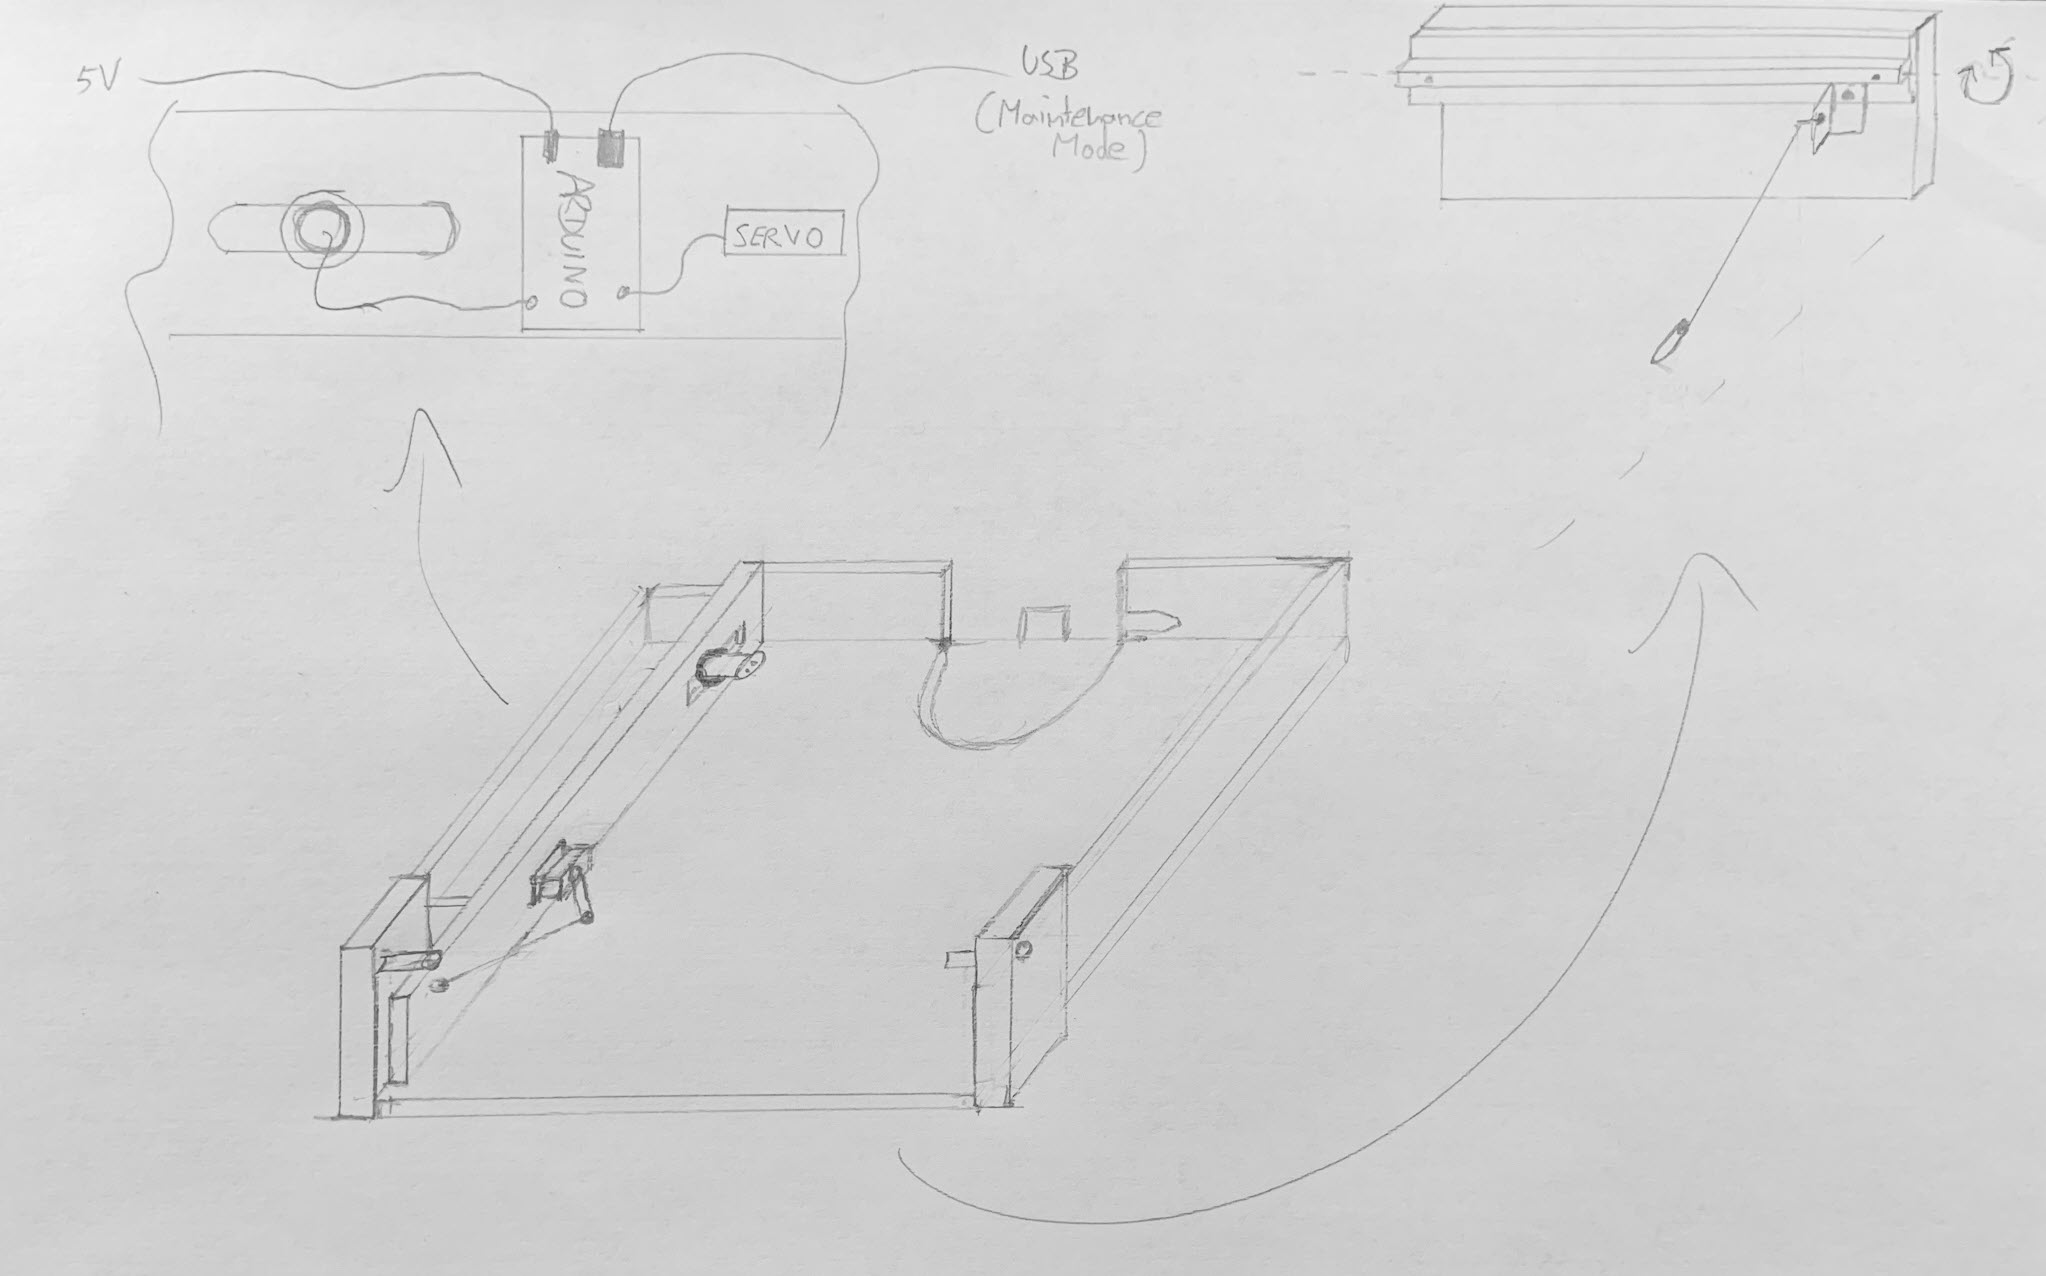 5V
USB
(Maintenance
Mode)
ARDUINO
SERVO